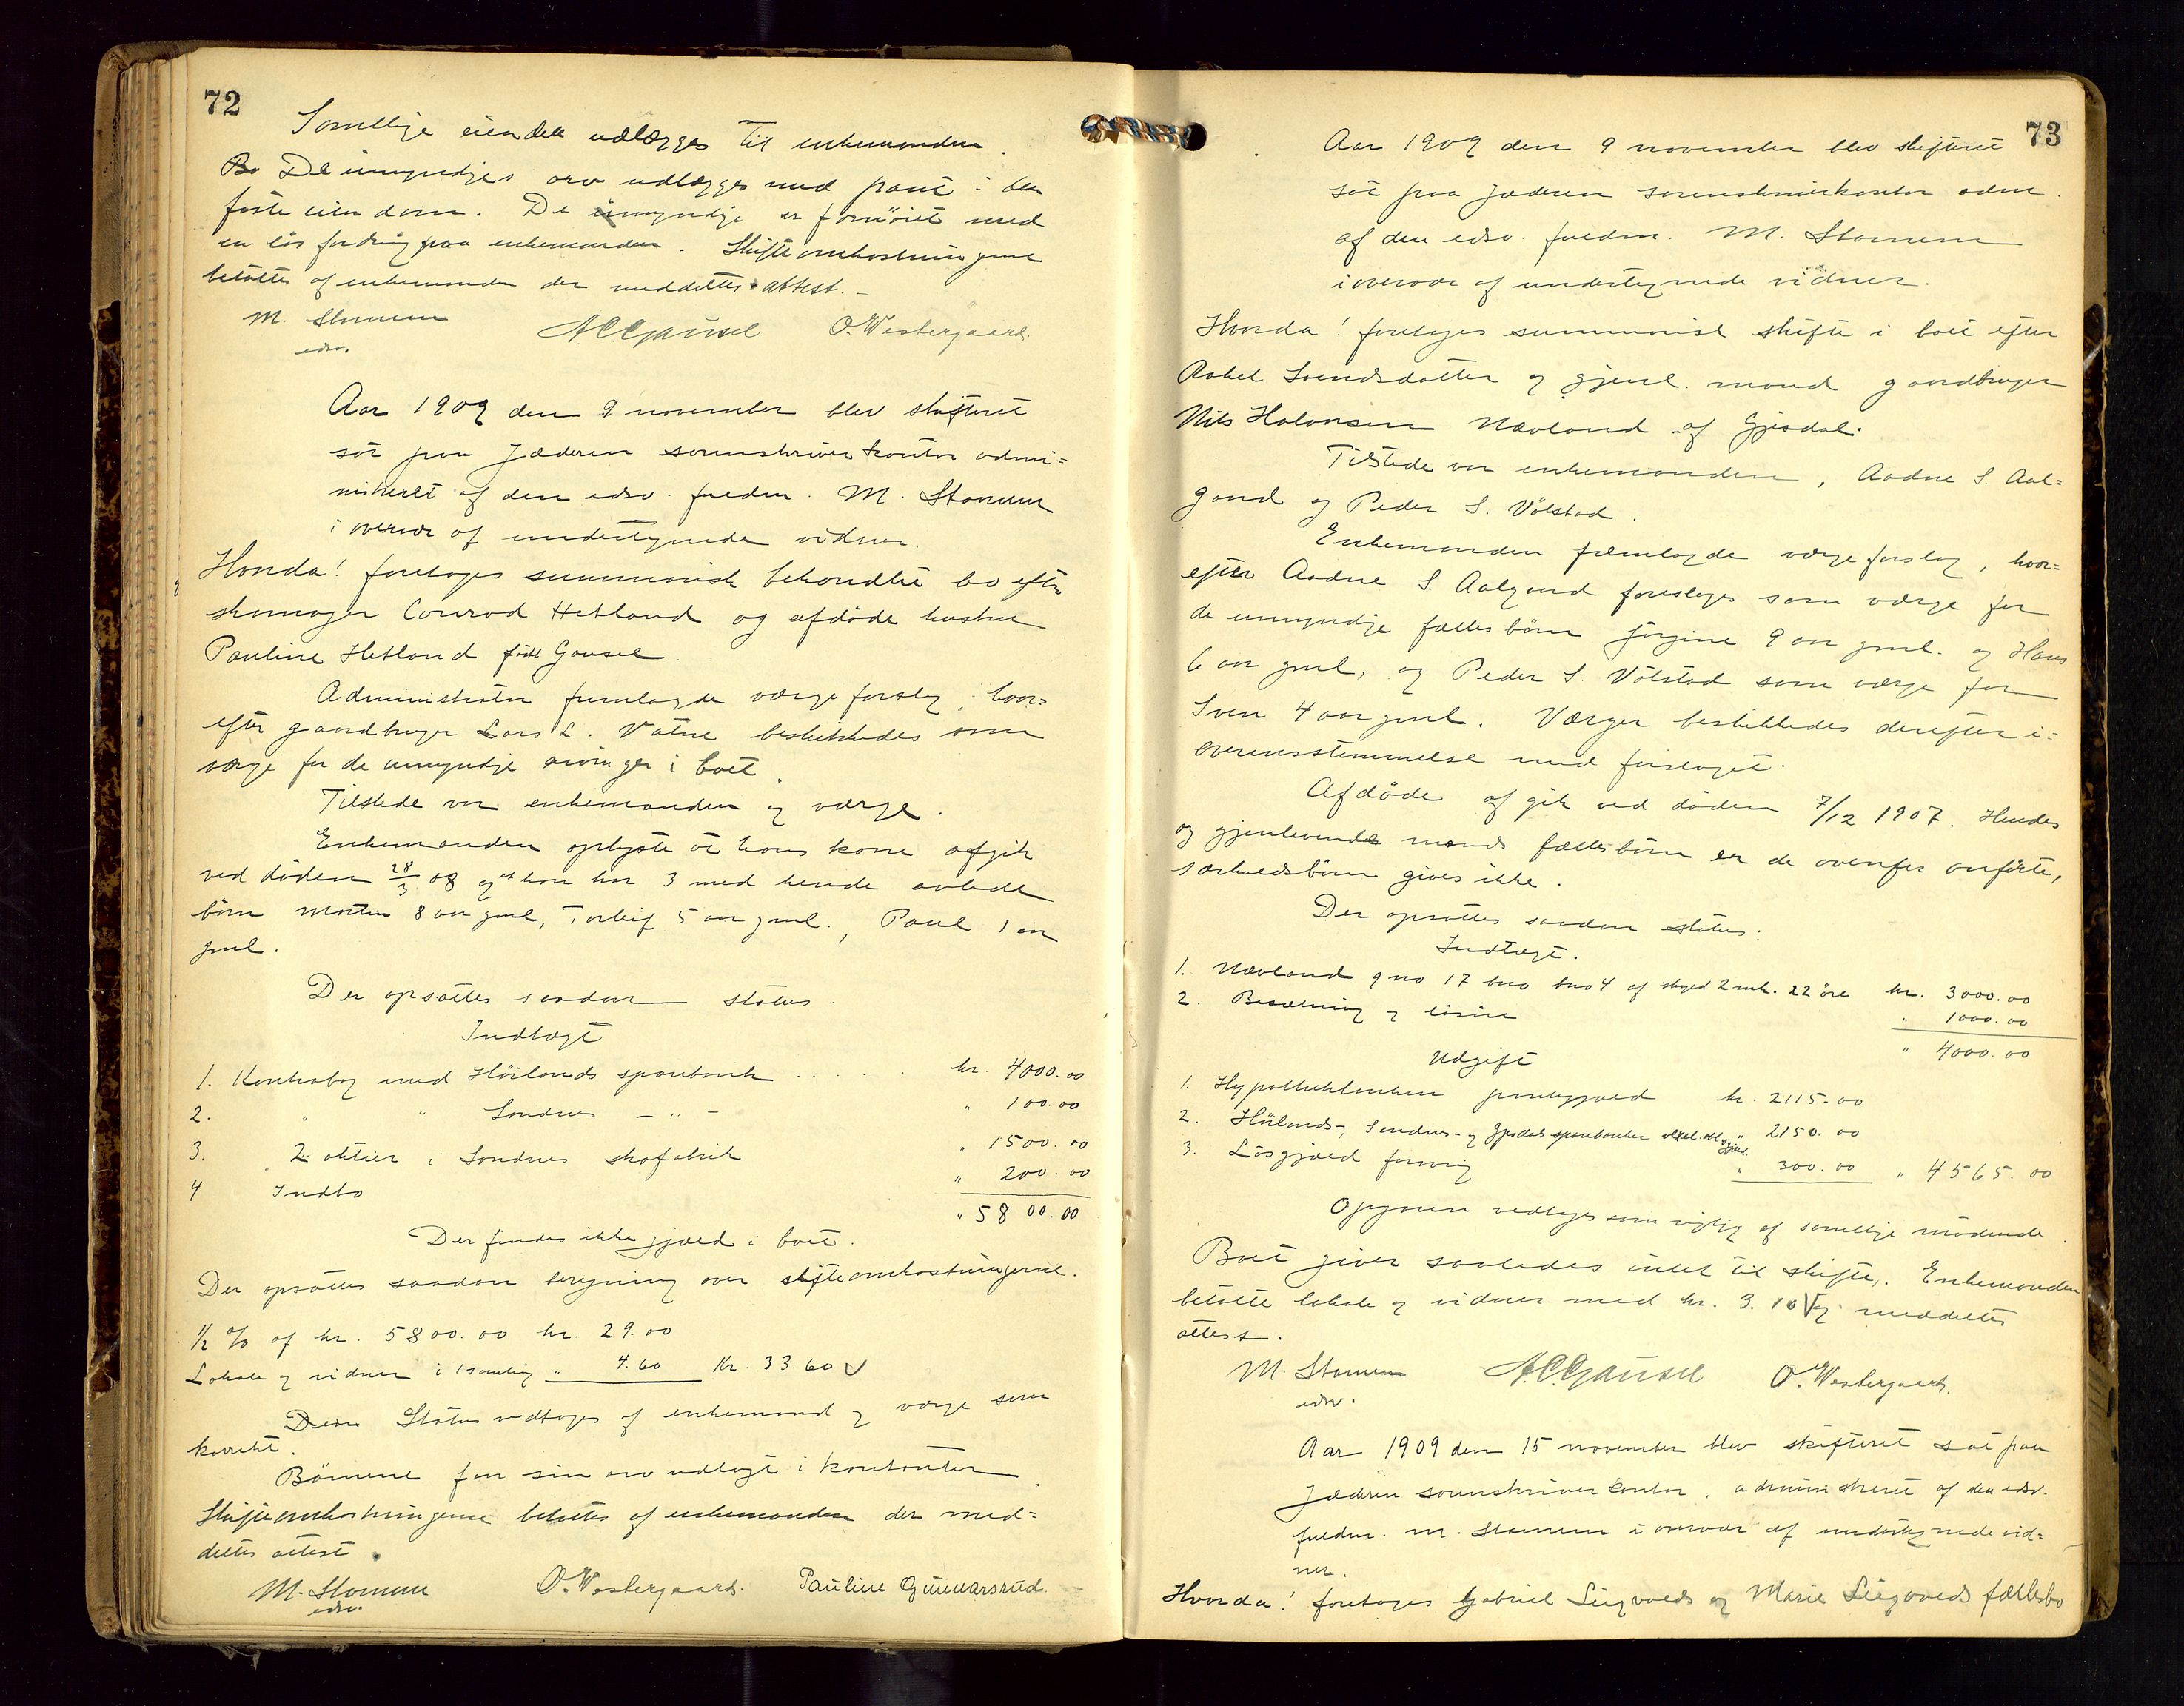 72
Samtlige eiendele udlægges til enkemanden.
Bo De umyndiges arv udlægges med pant i den
faste eiendom. De umyndige er fornöiet med
en lös fordring paa enkemanden. Skifteomkostningerne
betaltes af enkemanden der meddeltes attest.-
M. Stomem A.C. Gausel O. Westergaard.
edsv.
Aar 1909 den 9 november blev skifteret
sat paa Jæderen sorenskriverkontor admi=
nistreret af den edsv. fuldm. M. Stomem
i overvær af undertegnede vidner.
Hvorda! foretoges summarisk behandlet bo efter
skomager Conrad Hetland og afdöde hustru
Pauline Hetland född Gausel
Administrator fremlagde værgeforslag, hvor=
efter gaardbruger Lars L. Vatne beskikkedes som
værge for de umyndige arvinger i boet.
Tilstede var enkemanden og værge.
Enkemanden oplyste at hans kone afgik
ved döden 28/3 08 og at han har 3 med hende avlede
börn Morten 8 aar gml, Torleif 5 aar gml., Paul 1 aar
gml.
Der opsattes saadan status.
Indtægt
1. Kontrabog med Höilands sparebank . . . . . kr. 4000.00
2. " " Sandnes - " - " 100.00
3. 2 aktier i Sandnes skofabrik " 1500.00
4 Indbo " 200.00
" 5800.00
Der findes ikke gjæld i boet.
Der opsattes saadan beregning over skifteomkostningerne.
1/2 % af kr. 5800.00 kr. 29.00
Lokale og vidner i 1 samling " 4.60 Kr. 33.60
Status vedtoges af enkemand og værge som
korrekt.
Börnene faar sin arv udlagt i kontanter.
Skifteomkostningerne betaltes af enkemanden der med=
deltes attest.
M. Stomem O. Westergaard. Pauline Gunnarsrud.
edsv.
73
Aar 1909 den 9 november blev skifteret
sat paa Jæderen sorenskriverkontor adm.
af den edsv. fuldm. M. Stomem
i overvær af undertegnede vidner.
Hvorda! foretoges summarisk skifte i boet efter
Rakel Svendsdatter og gjenl. mand gaardbruger
Nils Halvorsen Nævland af Gjesdal.
Tilstede var enkemanden, Aadne S. Aal=
gaard og Peder S. Völstad.
Enkemanden fremlagde værgeforslag, hvor=
efter Aadne S. Aalgaard foresloges som værge for
de umyndige fællesbörn Jörgine 9 aar gml. og Hans
6 aar gml, og Peder S. Völstad som værge for
Sven 4 aar gml. Værger beskikkedes derefter i=
overensstemmelse med forslaget.
Afdöde afgik ved döden 7/12 1907. Hendes
og gjenlevende mands fællesbörn er de ovenfor anförte,
særkuldsbörn gives ikke.
Der opsattes saadan status:
Indtægt.
1. Nævland gno 17 bno 4 af skyld 2 mk. 22 öre kr. 3000.00
2. Besætning og lösöre " 1000.00
" 4000.00
Udgift
1. Hypothekbanken pantegjæld kr. 2115.00
2. Höilands-, Sandnes- og Gjesdal sparebanker " 2150.00
3. Lösgjæld forövrig " 300.00 " 4565.00
Opgaven vedtoges som rigtig af samtlige mödende.
Boet giver saaledes intet til skifte. Enkemanden
betalte lokale og vidner med kr. 3.10 og meddeltes
attest.
M. Stomem A.C. Gausel O. Westergaard.
edsv.
Aar 1909 den 15 november blev skifteret sat paa
Jæderen sorenskriverkontor, administreret af den edsv.
fuldm. M. Stomem i overvær af undertegnede vid=
ner.
Hvorda! foretoges Gabriel Sigvalds og Marie Sigvalds fællesbo